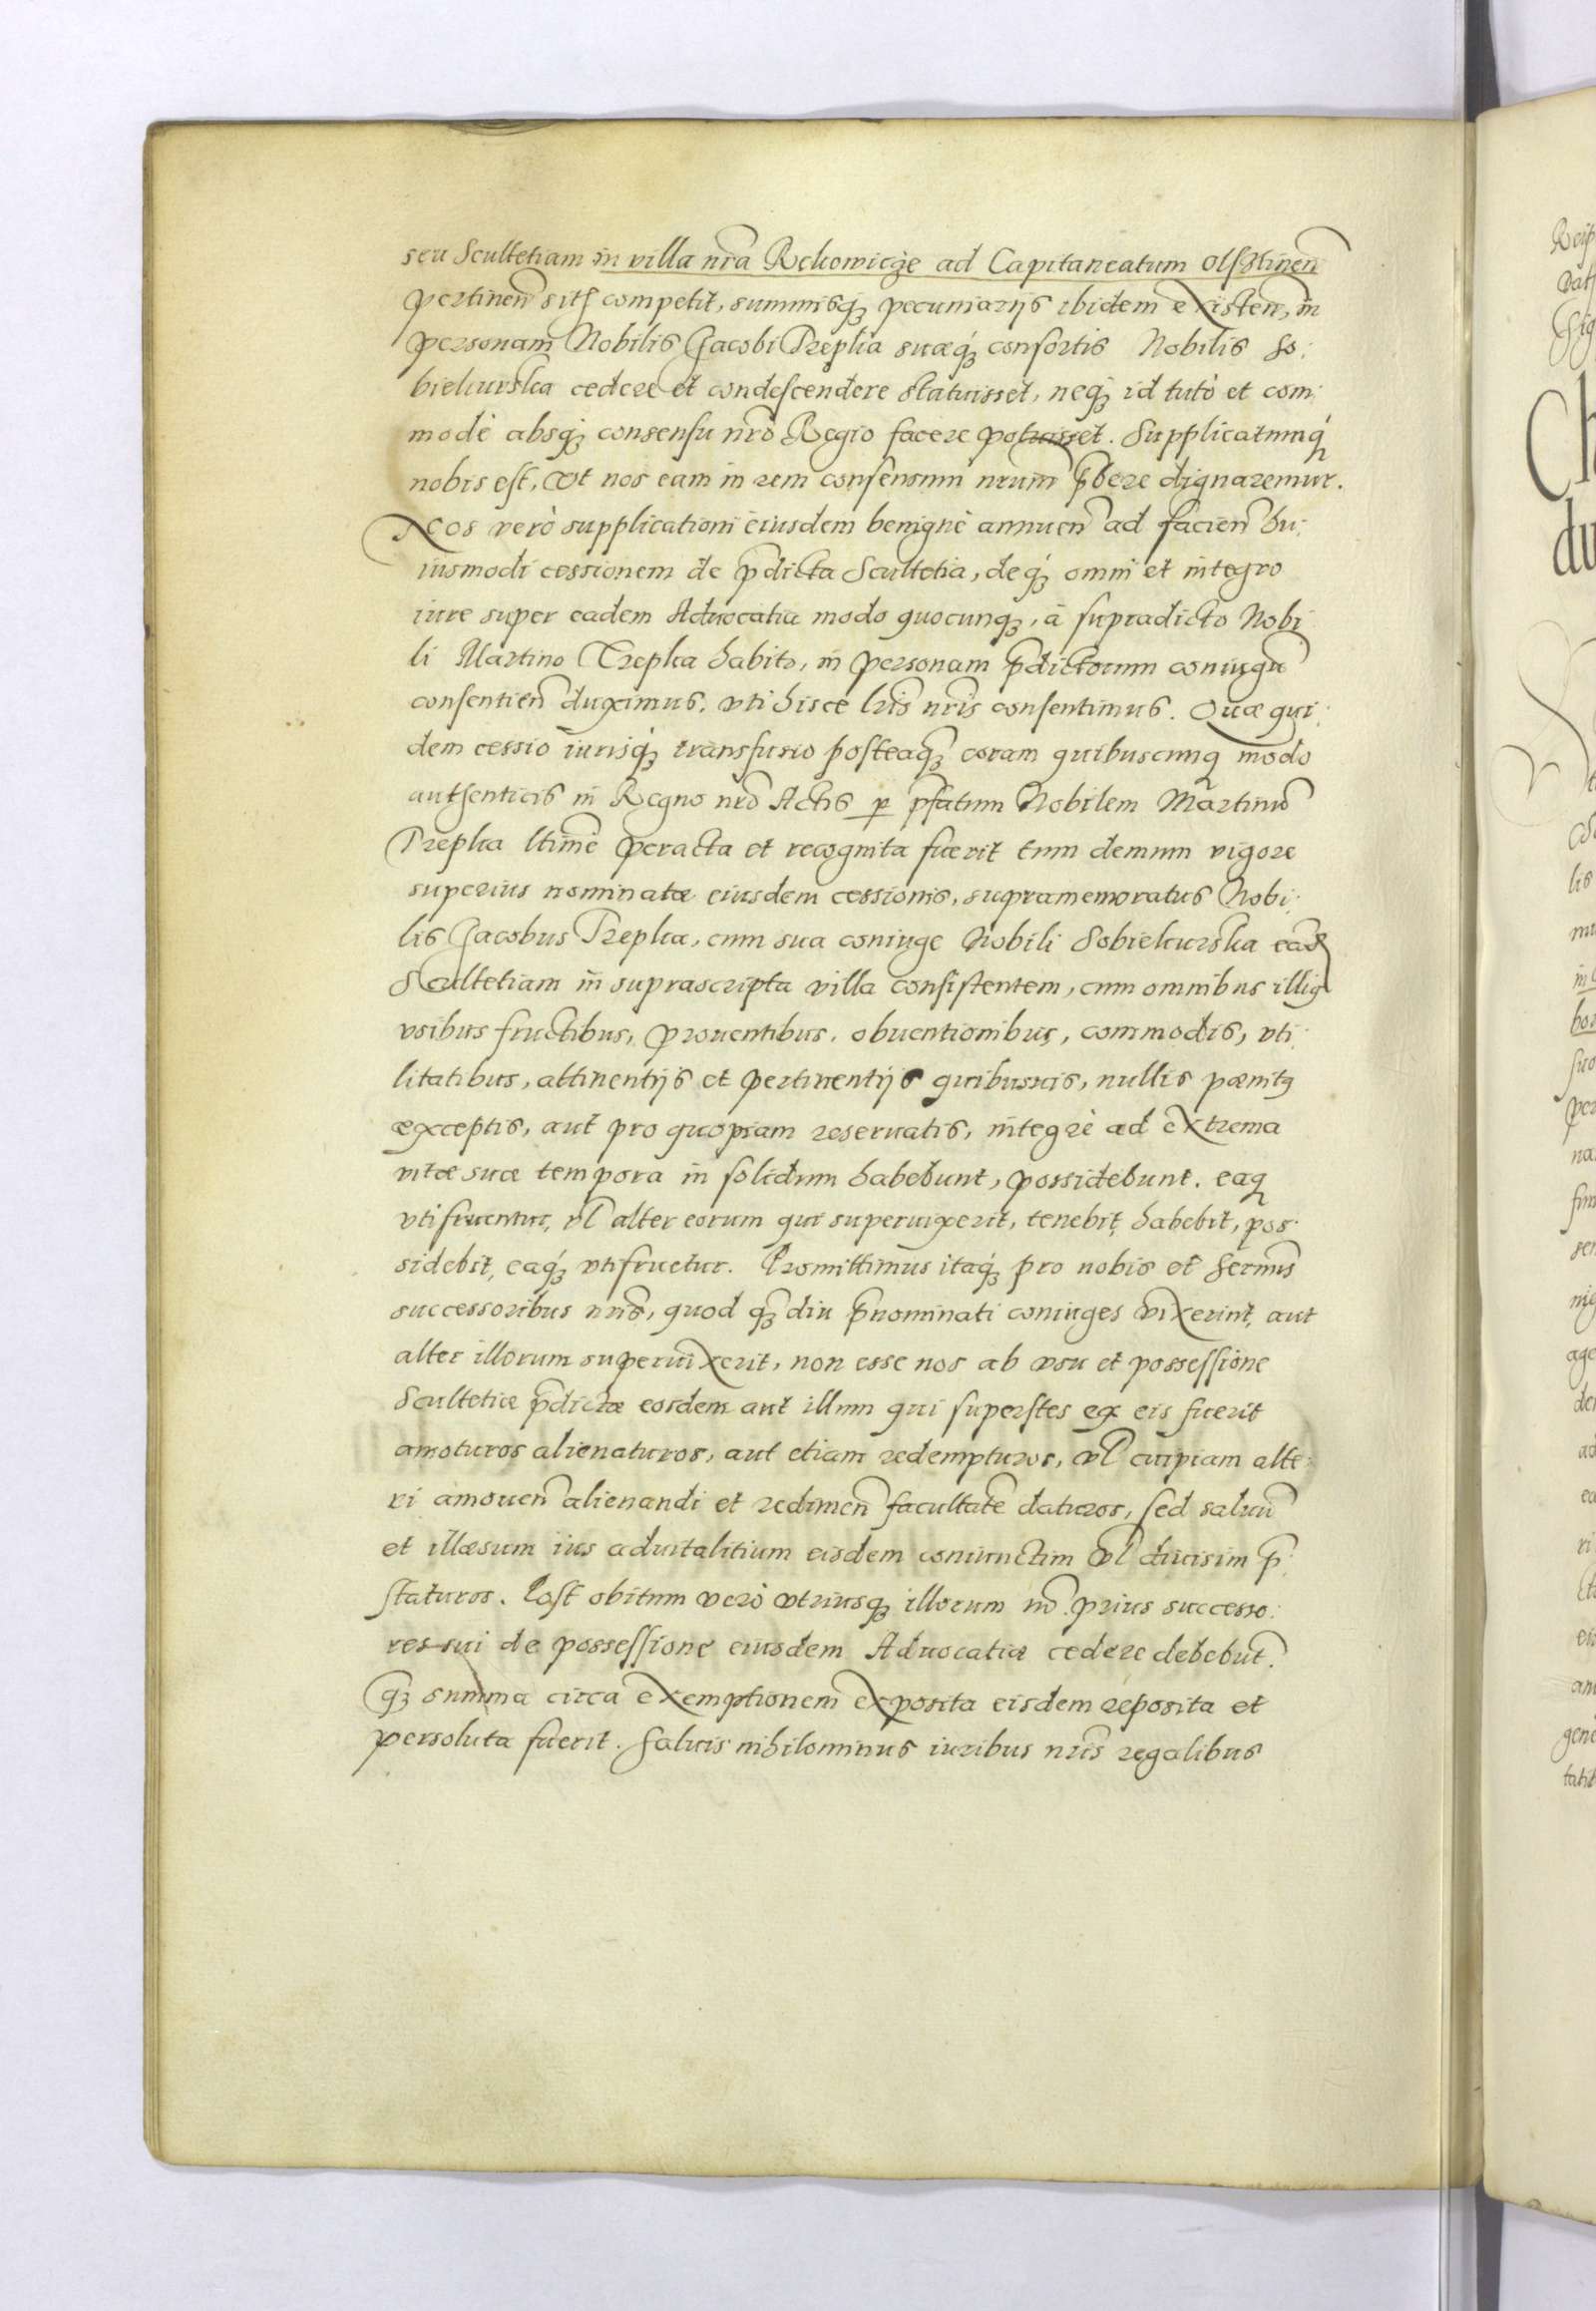 seu Scultetiam in villa nr̃a Rekowicze ad Capitaneatum Olsztineñ
pertineñ competit, summisq; pecuniarijs ibidem existeñ, in
personam Nobilis Jacobi Trepka suæq; consortis Nobilis So:
biekurska cedere et condescendere statuisset, neq; id tutò et com:
modè absq; consensu nr̃o Regio facere potuisset. Supplicatumq;
nobis est, vt nos eam in rem consensum nr̃um p̃bere dignaremur.
Nos verò supplicationi eiusdem benignè annueñ ad facieñ hu:
iusmodi cessionem de p̃dicta Scultetia, deq; omni et integro
iure super eadem Aduocatia modo quocunq;, à supradicto Nobi
li Martino Trepka habito, in personam p̃dictorum coniugũ
consentieñ duximus, vti hisce lr̃is nr̃is consentimus. Quæ qui:
dem cessio iurisq; transfusio posteaq̃; coram quibuscunq; modo
authenticis in Regno nr̃o Actis p p̃fatum Nobilem Martinũ
Trepka ltimè peracta et recognita fuerit tum demum vigore
superius nominatæ eiusdem cessionis, supramemoratus Nobi:
lis Jacobus Trepka, cum sua coniuge Nobili Sobiekurska eañd
Scultetiam in suprascripta villa consistentem, cum omnibus illi9
vsibus fructibus, prouentibus, obuentionibus, commodis, vti:
litatibus, attinentijs et pertinentijs quibusuis, nullis pænit9
exceptis, aut pro quopiam reseruatis, integrè ad extrema
vitæ suæ tempora in solidum habebunt, possidebunt, eaq;
vtifruentur, vl alter eorum qui superuixerit, tenebit, habebit, pos:
sidebit, eaq; vtifruetur. Promittimus itaq; pro nobis et Serm̃is
successoribus nr̃is, quod q̃;diu p̃nominati coniuges vixerint, aut
alter illorum superuixerit, non esse nos ab vsu et possessione
Scultetiæ p̃dictæ eosdem aut illum qui superstes ex eis fuerit
amoturos alienaturos, aut etiam redempturos, vl cuipiam alte:
ri amoueñ alienandi et redimeñ facultatẽ daturos, sed saluũ
et illæsum ius aduitalitium eisdem coniunctim vl diuisim p̃:
staturos. Post obitum verò vtriusq; illorum nõ prius successo:
res sui de possessione eiusdem Aduocatiæ cedere debebũt.
q̃; summa circa exemptionem exposita eisdem reposita et
persoluta fuerit. Saluis nihilominus iuribus nr̃is regalibus